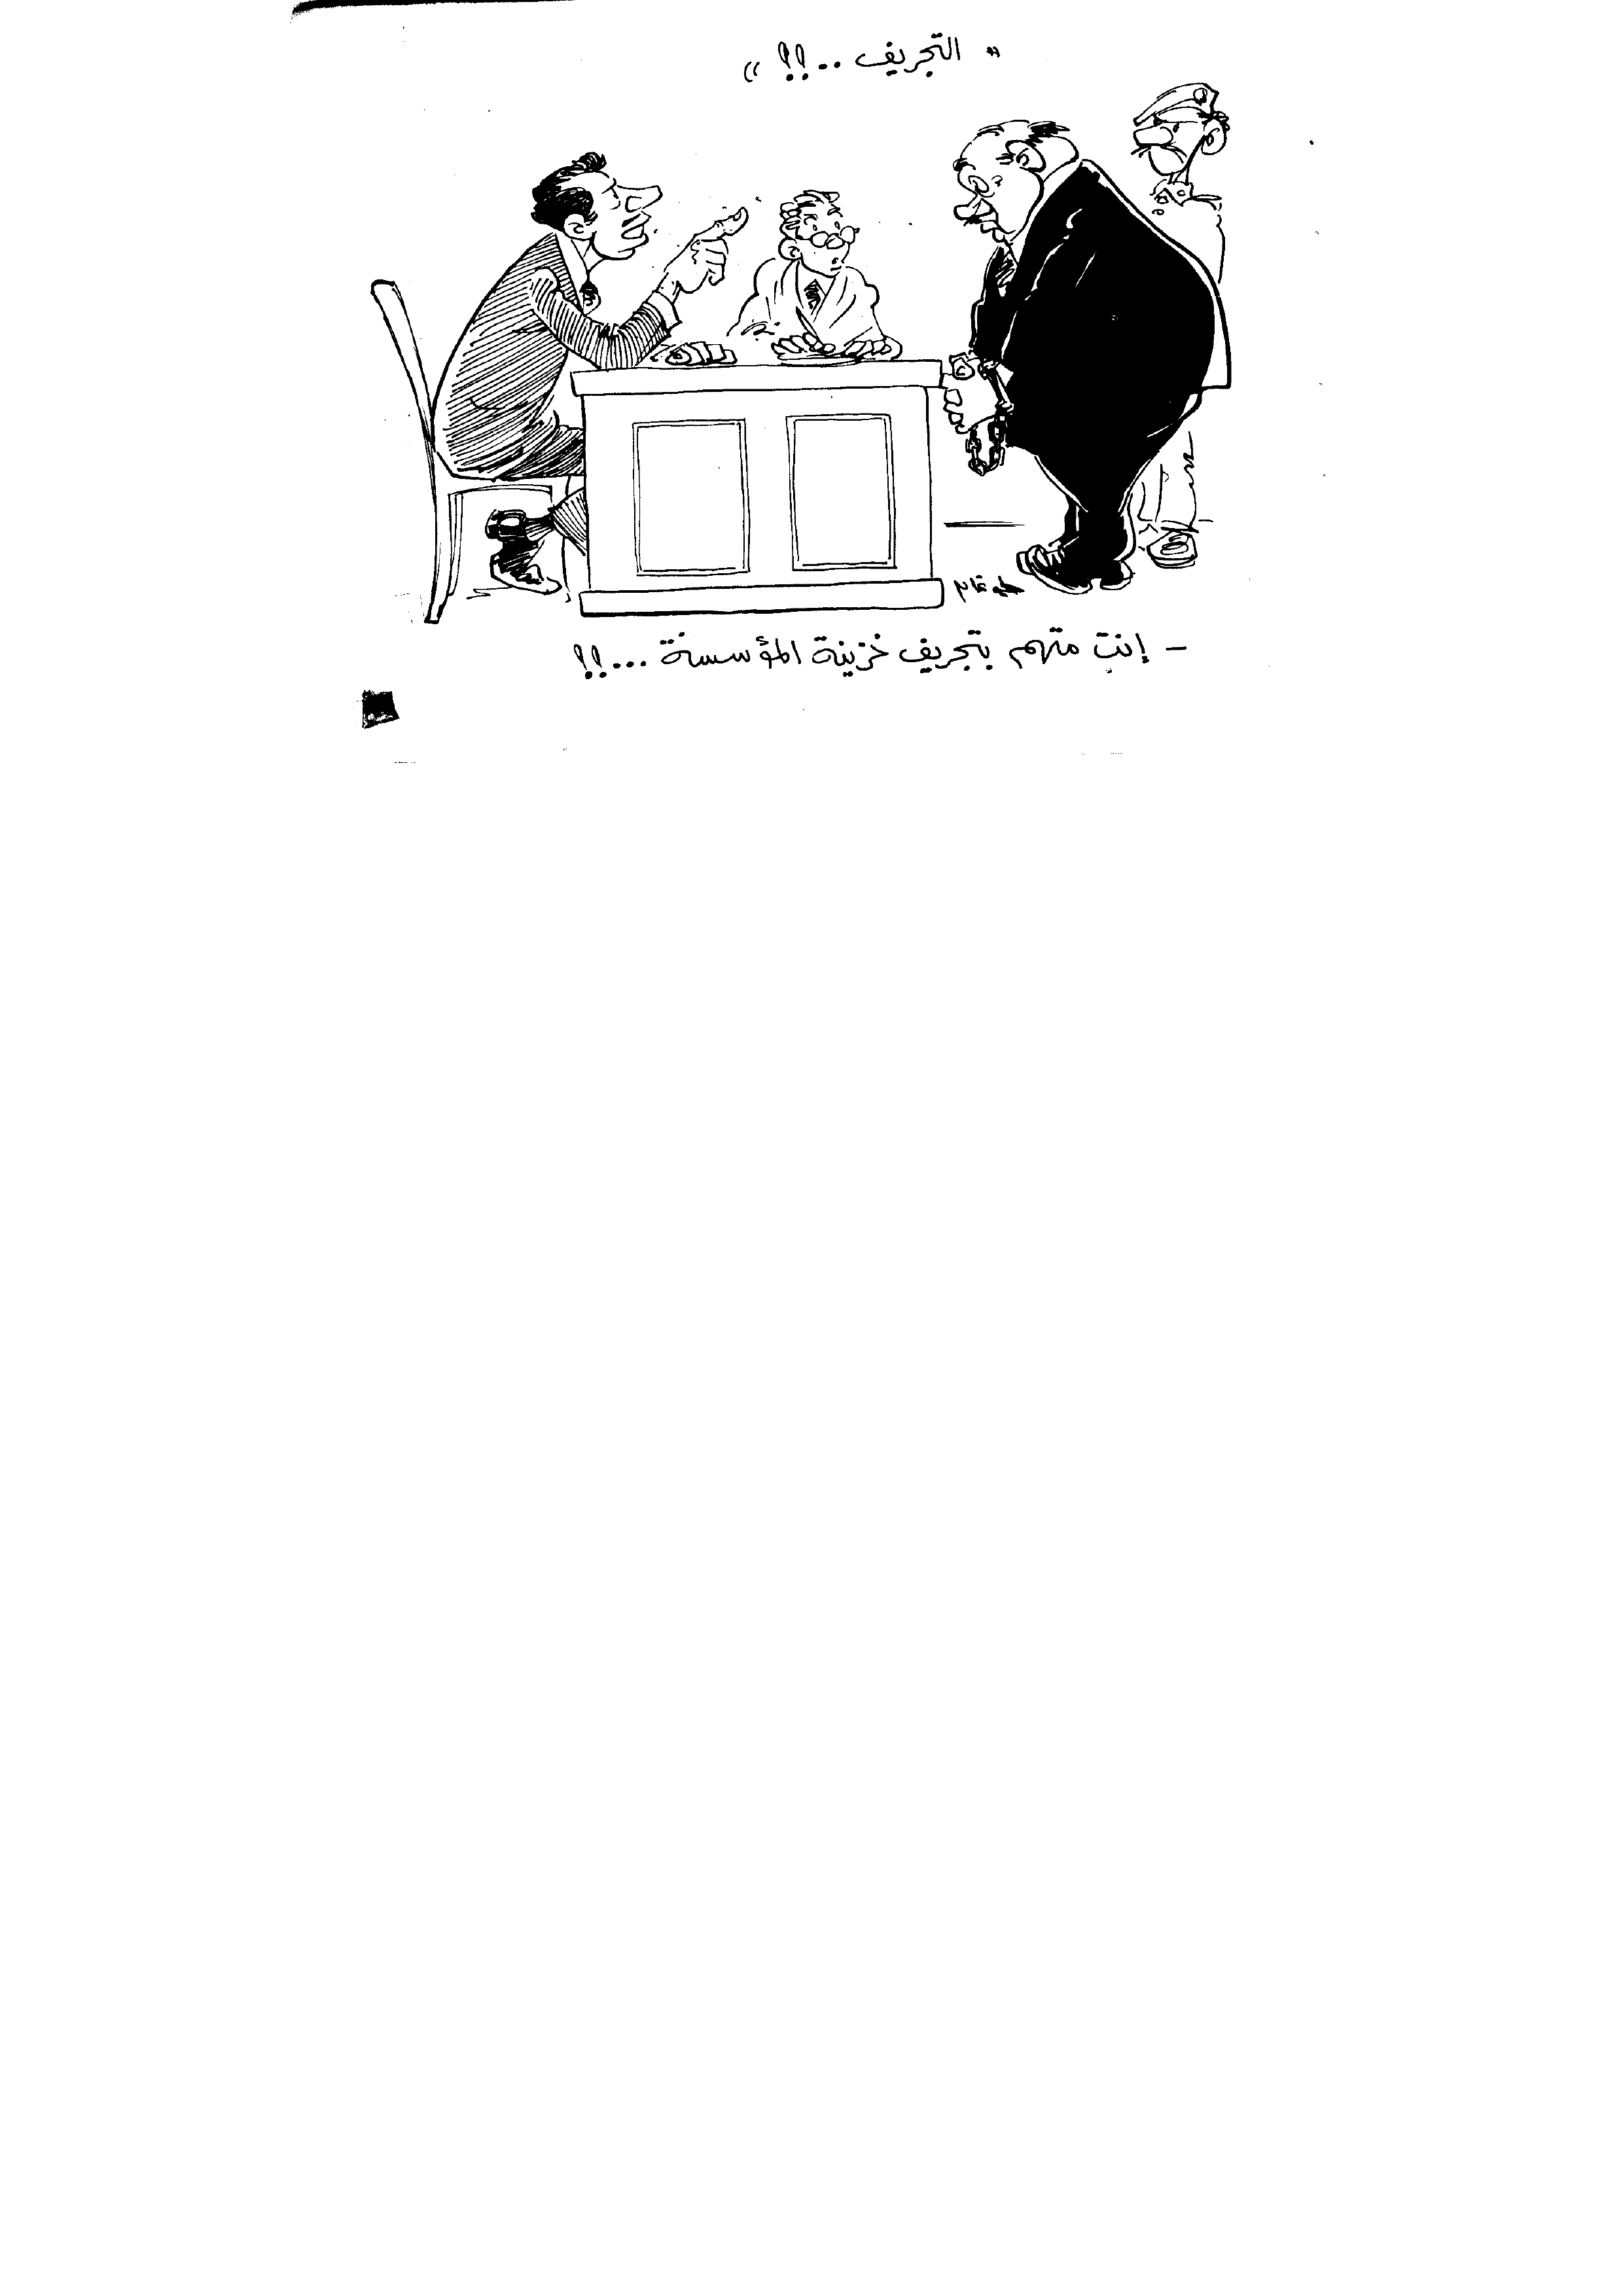 « التجريف ..!! »
- إنت متهم بتجريف خزينة المؤسسة ...!!